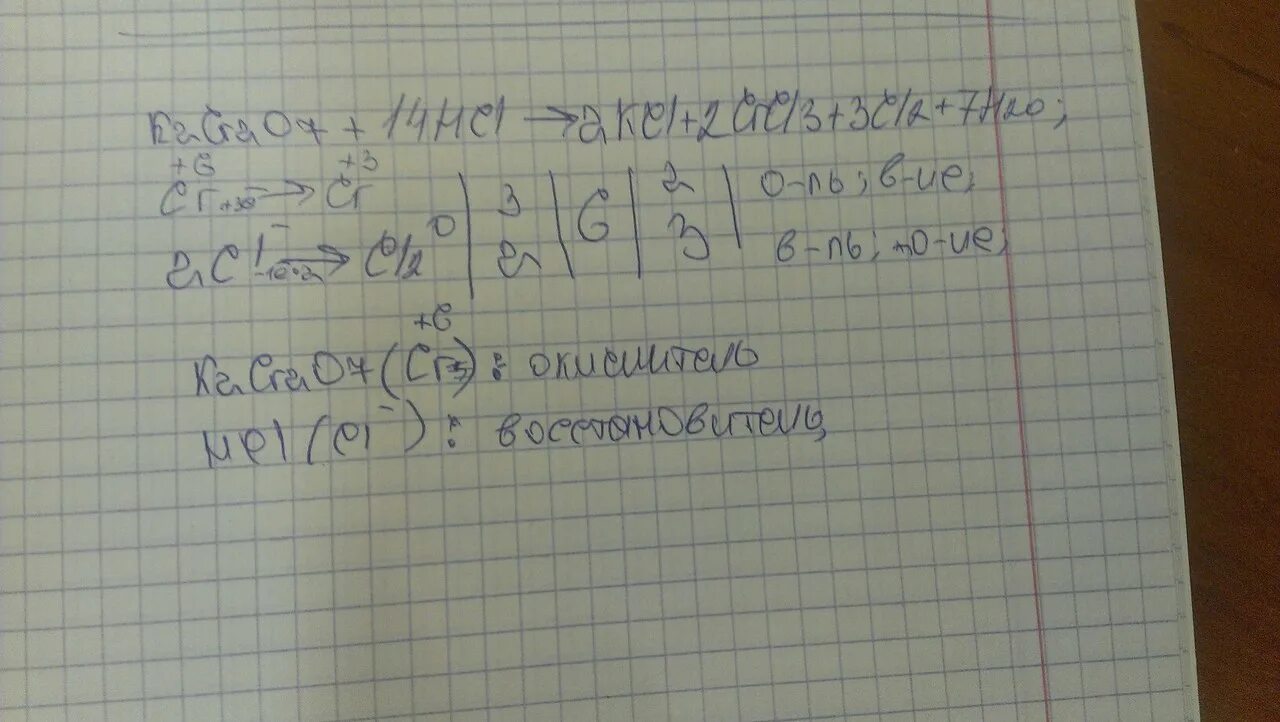 K2Cr2O7 + 14HCl → 2KCl + 2CrCl3 + 3Cl2 + 7H2O;
Cr+6 +3e → Cr+3 | 3 | 6 | 2 | о-ль; в-ие;
2Cl- -1e·2 → Cl2 0 | 2 | | 3 | в-ль; о-ие;
K2Cr2O7 (Cr+6): окислитель
HCl (Cl-): восстановитель